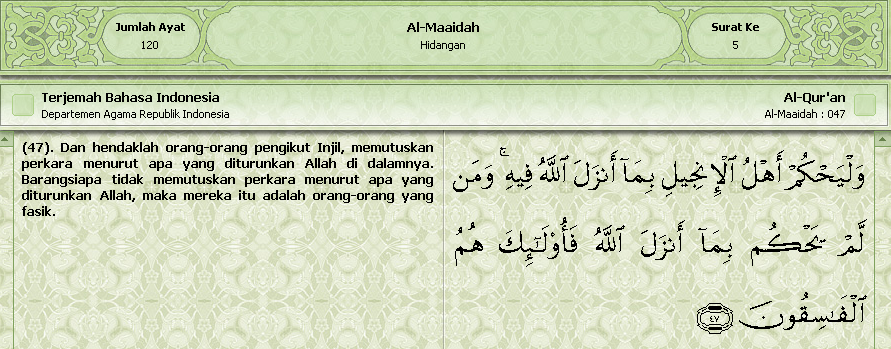 Jumlah Ayat
120
Al-Maaidah
Hidangan
Surat Ke
5
Terjemah Bahasa Indonesia
Departemen Agama Republik Indonesia
Al-Qur'an
Al-Maaidah : 047
(47). Dan hendaklah orang-orang pengikut Injil, memutuskan
perkara menurut apa yang diturunkan Allah di dalamnya.
Barangsiapa tidak memutuskan perkara menurut apa yang
diturunkan Allah, maka mereka itu adalah orang-orang yang
fasik.
وَلْيَحْكُمْ أَهْلُ ٱلْإِنجِيلِ بِمَآ أَنزَلَ ٱللَّهُ فِيهِ ۚ وَمَن
لَّمْ يَحْكُم بِمَآ أَنزَلَ ٱللَّهُ فَأُو۟لَـٰٓئِكَ هُمُ
ٱلْفَـٰسِقُونَ ٤٧